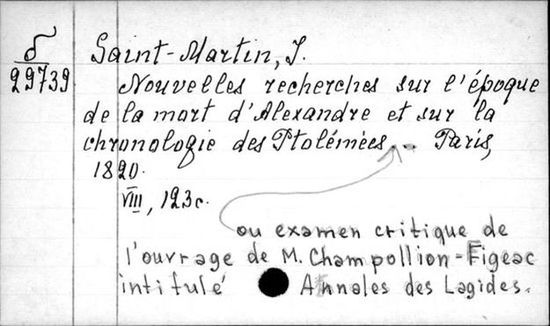 б
29739
Saint-Martin, J.
Nouvelles recherches sur l'époque
de la mort d'Alexandre et sur la
chronologie des Ptolémées... Paris,
1820.
VIII, 123c.
ou examen critique de
l'ouvrage de M. Champollion-Figeac
intitulé Annales des Lagides.